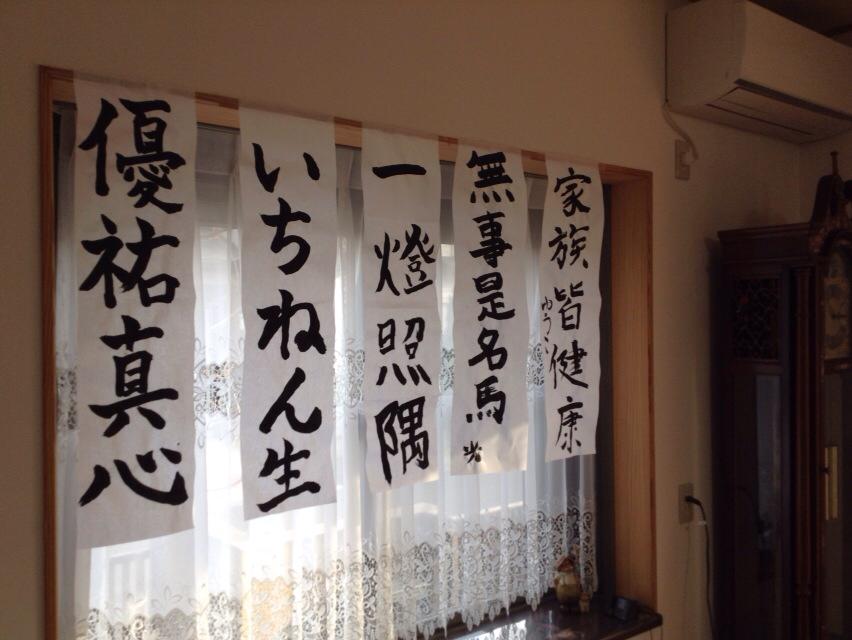 家族皆健康
ゆうこ
無事是名馬
光
一燈照隅
いちねん生
優祐真心